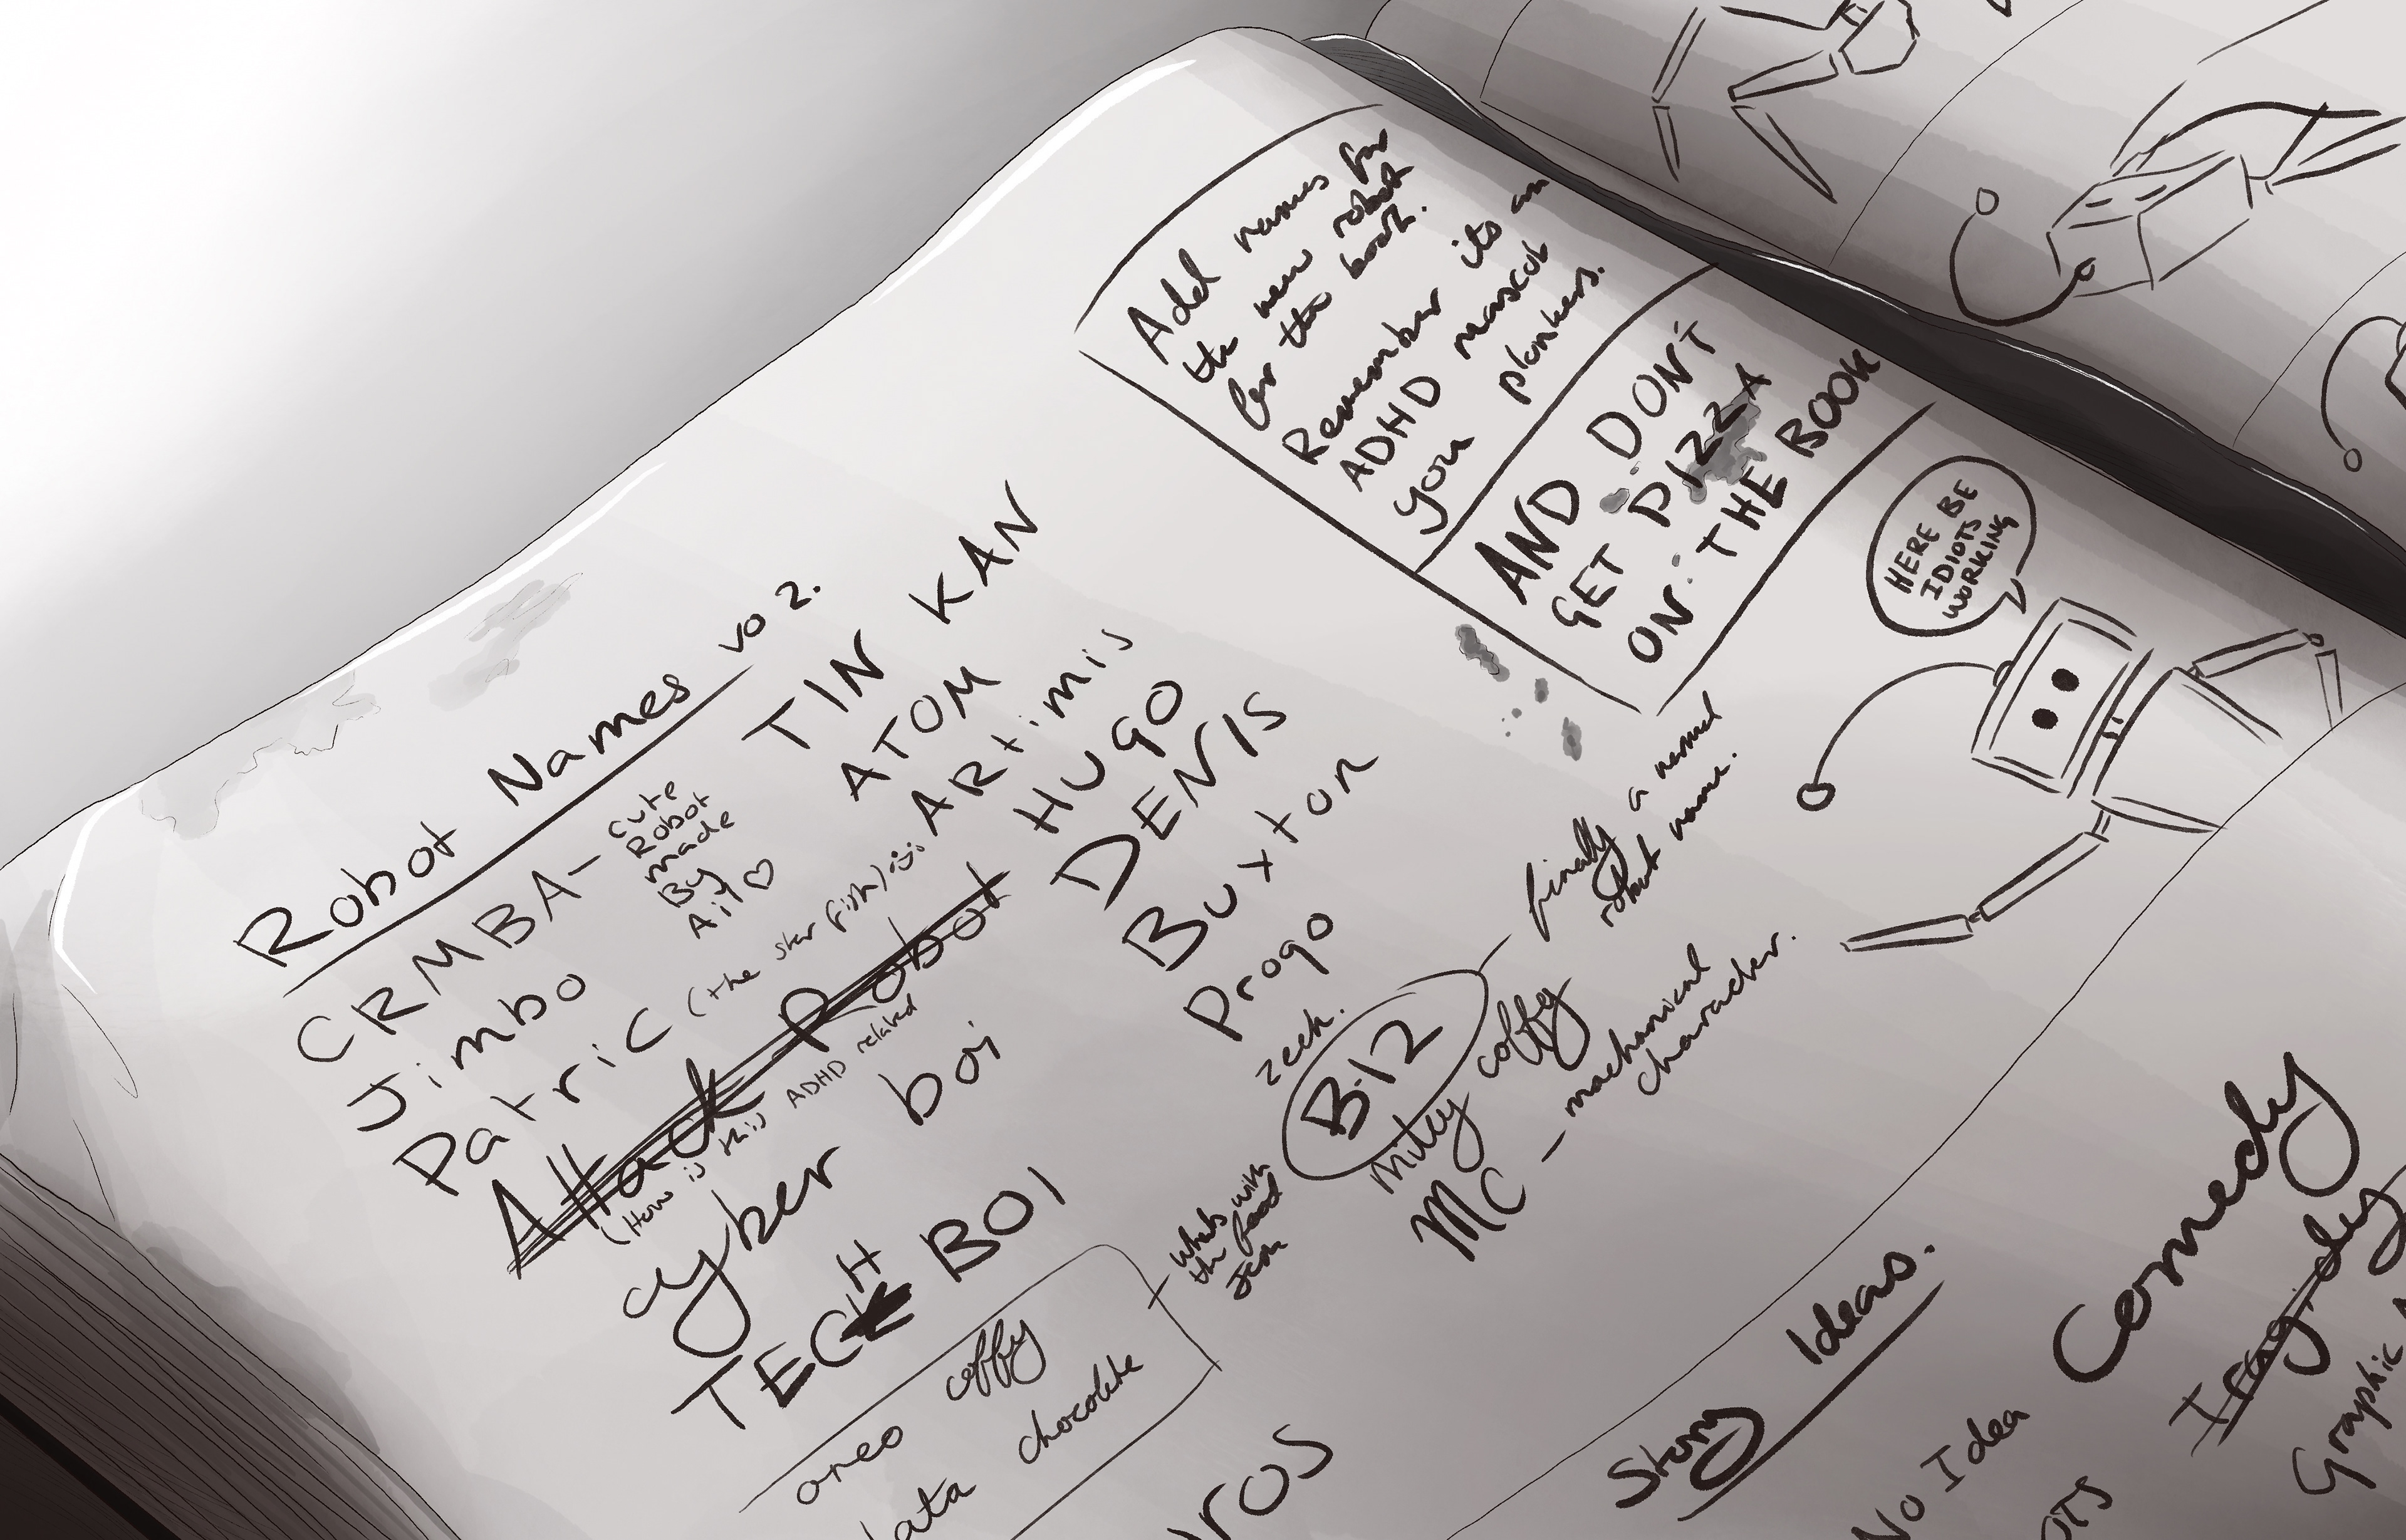 Add names for
the new robot
for the book.
Remember its an
ADHD mascot
you plonkers.
AND DON'T
GET PIZZA
ON THE BOOK
HERE BE
IDIOTS
WORKING
Robot Names vo 2.
CRMBA-
cute
Robot
made
By
Ail ♡
Jimbo
Patric (the star fish)
Attack Robot
(How is this ADHD related
cyber boi
TECH BOI
oreo coffy
chocolate
whats with
the food
Jem
TIN KAN
ATOM
ARtimis
HUGO
DENIS
Buxton
Progo
zeek.
B-12
finally a normal
robot name.
Milky coffy
MC - machanical
character.
Story Ideas.
No Idea
Comedy
Tragidy
Graphic